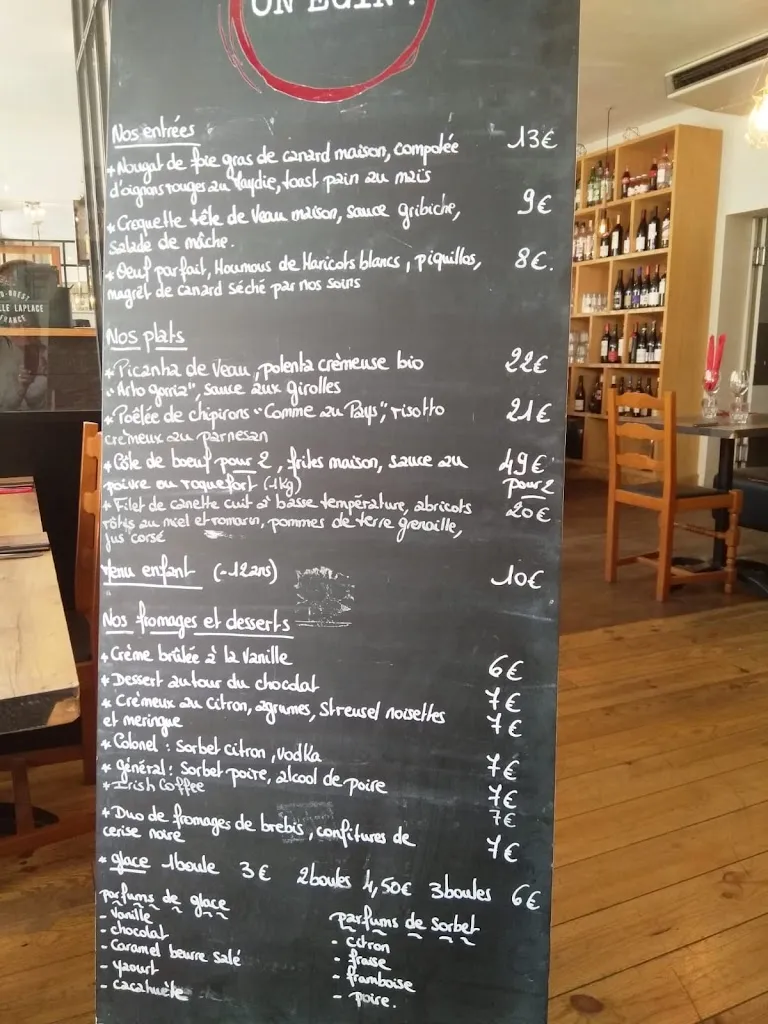 ON EGIN !
Nos entrées
* Nougat de foie gras de canard maison, compotée 13€
d'oignons rouges au, toast pain au maïs
* Croquette tête de Veau maison, sauce gribiche, 9€
Salade de mâche.
* Oeuf parfait, Houmous de Haricots blancs, piquillos, 8€.
magret de canard séché par nos soins
Nos plats
* Picanha de veau, polenta crèmeuse bio 22€
"Arto gorria", sauce aux girolles
* Poêlée de chipirons "Comme au Pays", risotto 21€
crèmeux au parmesan
* Côte de boeuf pour 2, frites maison, sauce au 49€
poivre ou roquefort (-1kg) pour 2
* Filet de canette cuit à basse température, abricots 20€
rôtis au miel et romarin, pommes de terre grenaille,
jus corsé
Menu enfant (-12ans) 10€
Nos fromages et desserts
* Crème brûlée à la vanille 6€
* Dessert autour du chocolat 7€
* Crèmeux au citron, agrumes, streusel noisettes 7€
et meringue
* Colonel : Sorbet citron, vodka 7€
* général : Sorbet poire, alcool de poire 7€
* Irish Coffee 7€
* Duo de fromages de brebis, confitures de 7€
cerise noire
* glace 1boule 3€ 2boules 4,50€ 3boules 6€
parfums de glace
- Vanille
- chocolat
- Caramel beurre salé
- yaourt
- cacahuète
parfums de sorbet
- citron
- fraise
- framboise
- poire.
LAPLACE
FRANCE